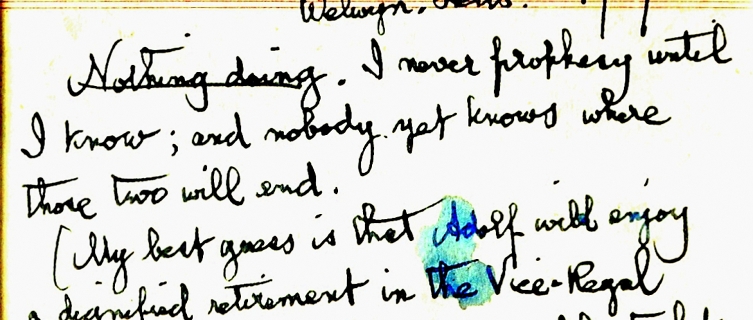 Welwyn. Herts.
Nothing doing. I never prophesy until
I know; and nobody yet knows where
those two will end.
(My best guess is that Adolf will enjoy
a dignified retirement in the Vice-Regal